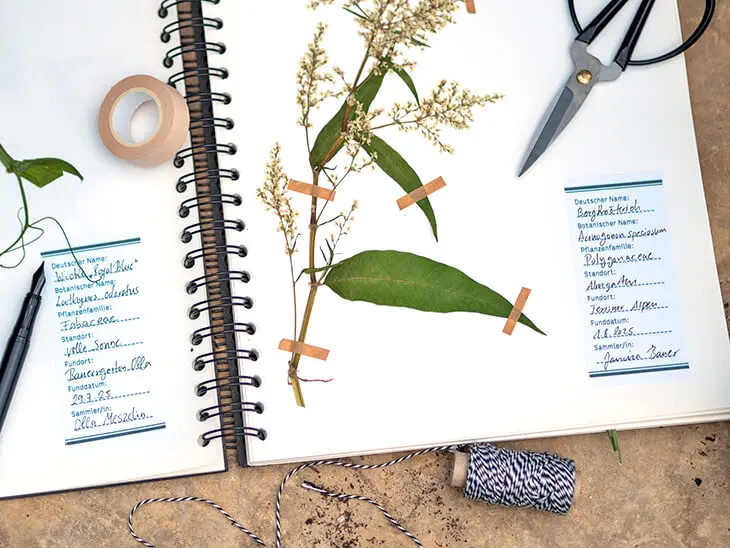 Deutscher Name:
Wicke „Royal Blue"
Botanischer Name:
Lathyrus odoratus
Pflanzenfamilie:
Fabaceae
Standort:
volle Sonne
Fundort:
Bauerngarten Olla
Funddatum:
29.7.25
Sammler/in:
Olla Meszelin
Deutscher Name:
Bergknöterich
Botanischer Name:
Aconogonon speciosum
Pflanzenfamilie:
Polygonaceae
Standort:
Fundort:
Tessiner Alpen
Funddatum:
1.8.2025
Sammler/in:
Janina Bauer